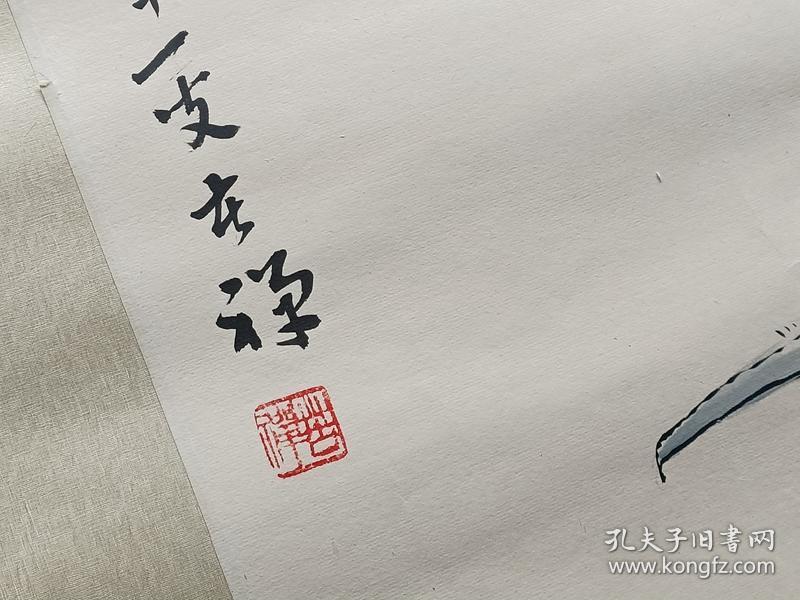 夏苦禅
孔夫子旧書网
www.kongfz.com